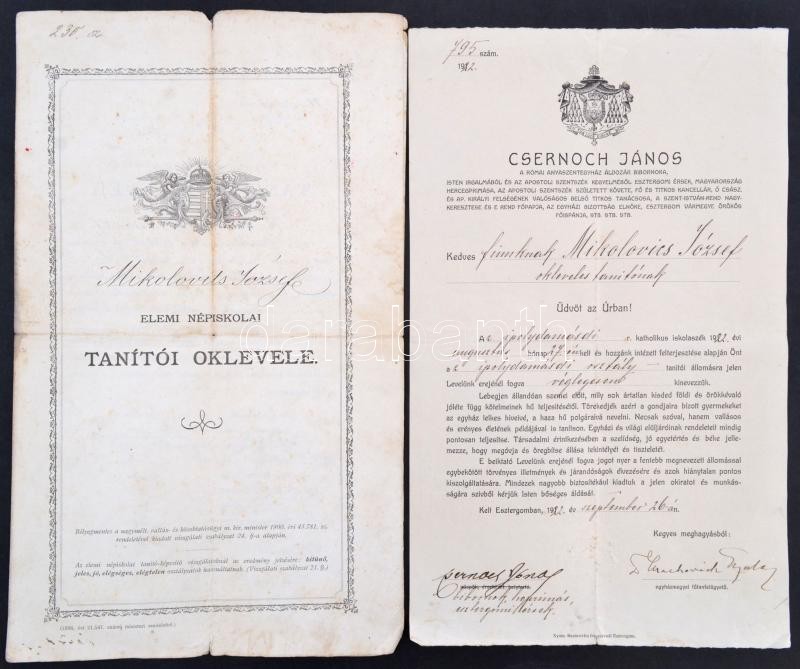 230. sz
Mikolovits József
ELEMI NÉPISKOLAI
TANÍTÓI OKLEVELE.
Bélyegmentes a nagymélt. vallás- és közoktatásügyi m. kir. minister 1900. évi 43.781. sz.
rendeletével kiadott vizsgálati szabályzat 24. §-a alapján.
Az elemi népiskolai tanító-képesítő vizsgálatoknál az eredmény jelzésére: kitünő,
jeles, jó, elégséges, elégtelen osztályzatok használtatnak. (Vizsgálati szabályzat 21. §.)
795 szám.
1922.
CSERNOCH JÁNOS
A RÓMAI ANYASZENTEGYHÁZ ÁLDOZÁR BIBORNOKA,
ISTEN IRGALMÁBÓL ÉS AZ APOSTOLI SZENTSZÉK KEGYELMÉBŐL ESZTERGOMI ÉRSEK, MAGYARORSZÁG
HERCEGPRIMÁSA, AZ APOSTOLI SZENTSZÉK SZÜLETETT KÖVETE, FŐ ÉS TITKOS KANCELLÁR, Ő CSÁSZ.
ÉS AP. KIRÁLYI FELSÉGÉNEK VALÓSÁGOS BELSŐ TITKOS TANÁCSOSA, A SZENT-ISTVÁN-REND NAGY-
KERESZTESE ÉS E REND FŐPAPJA, AZ EGYHÁZI BIZOTTSÁG ELNÖKE, ESZTERGOM VÁRMEGYE ÖRÖKÖS
FŐISPÁNJA, STB. STB. STB.
Kedves fiunknak Mikolovics József
okleveles tanítónak
Üdvöt az Úrban!
A ipolydamásdi r. katholikus iskolaszék 1922. évi
augusztus hónap 27-én kelt és hozzánk intézett felterjesztése alapján Önt
a ipolydamásdi osztály tanítói állomásra jelen
Levelünk erejénél fogva véglegesen kinevezzük.
Lebegjen állandóan szemei előtt, mily sok ártatlan kisded földi és örökkévaló
jóléte függ kötelmeinek hű teljesítésétől. Törekedjék azért a gondjaira bízott gyermekeket
az egyház lelkes híveivé, a haza hű polgáraivá nevelni. Nem csupán szóval, hanem vallásos
és erényes életének példájával is tanítson. Egyházi és világi elöljáróinak rendeleteit mindig
pontosan teljesítse. Társadalmi érintkezésében a szelídség, jó egyetértés és béke jelle-
mezze, hogy megóvja és öregbítse állása tekintélyét és tiszteletét.
E beiktató Levelünk erejénél fogva jogot nyer a fentebb megnevezett állomással
egybekötött törvényes illetmények és járandóságok élvezésére és azok hiánytalan pontos
kiszolgáltatására. Mindezek nagyobb biztosítékául kiadtuk a jelen okiratot és munkás-
ságára szívből kérjük Isten bőséges áldását.
Kelt Esztergomban, 1922. év szeptember 26-án.
Kegyes meghagyásból:
egyházmegyei főtanfelügyelő.
bibornok, hgprimás,
esztergomi érsek.
darabanth